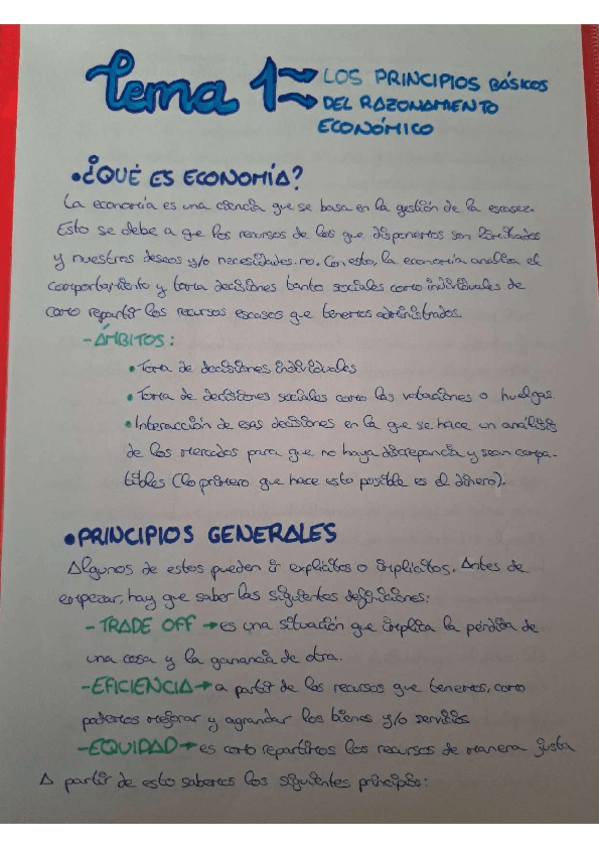 Tema 1 → LOS PRINCIPIOS BÁSICOS
DEL RAZONAMIENTO
ECONÓMICO
•¿QUÉ ES ECONOMÍA?
La economía es una ciencia que se basa en la gestión de la escasez.
Esto se debe a que los recursos de los que disponemos son limitados
y nuestros deseos y/o necesidades no. Con esto, la economía analiza el
comportamiento y toma decisiones tanto sociales como individuales de
como repartir los recursos escasos que tenemos administrados.
- ÁMBITOS:
• Toma de decisiones individuales
• Toma de decisiones sociales como las votaciones o huelgas.
• Interacción de esas decisiones en la que se hace un análisis
de los mercados para que no haya discrepancia y sean compa-
tibles (lo primero que hace esto posible es el dinero).
• PRINCIPIOS GENERALES
Algunos de estos pueden ir explícitos o implícitos. Antes de
empezar, hay que saber las siguientes definiciones:
- TRADE OFF → es una situación que implica la pérdida de
una cosa y la ganancia de otra.
- EFICIENCIA → a partir de los recursos que tenemos, como
podemos mejorar y agrandar los bienes y/o servicios
- EQUIDAD → es como repartimos los recursos de manera justa
A partir de esto sabemos los siguientes principios: